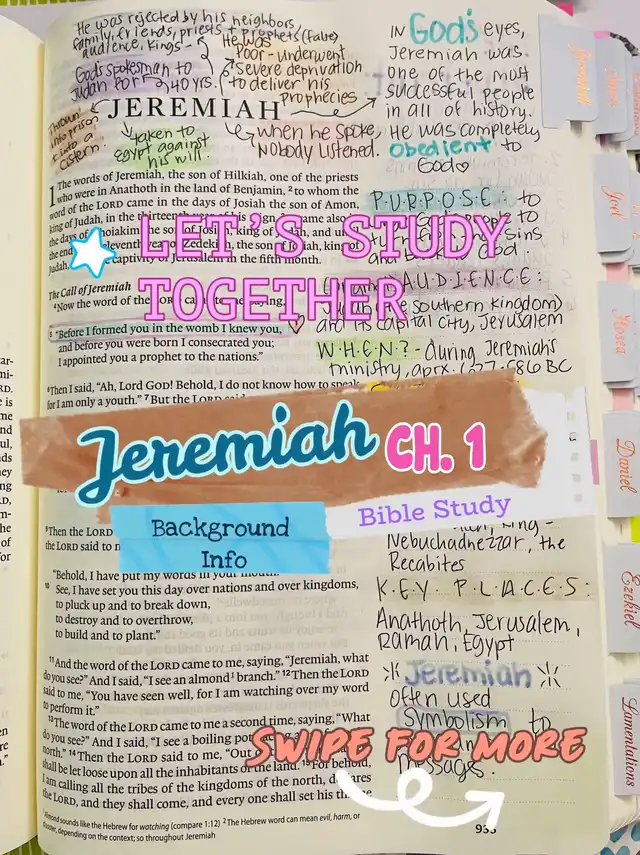 He was rejected by his neighbors
family, friends, priests + prophets (false)
audience, kings -
God's spokesman to
Judah for 40 yrs.
He was
Poor - underwent
severe deprivation
to deliver his
prophecies
Thrown
into prison
+ into a
cistern.
JEREMIAH
taken to
Egypt against
his will.
when he spoke,
Nobody listened.
IN God's eyes,
Jeremiah was
one of the most
successful people
in all of history.
He was completely
obedient to
God
1 The words of Jeremiah, the son of Hilkiah, one of the priests
who were in Anathoth in the land of Benjamin, 2 to whom the
word of the LORD came in the days of Josiah the son of Amon,
king of Judah, in the thirteenth year of his reign. It came also in
the days of Jehoiakim the son of Josiah, king of Judah, and until
the end eleventh of Zedekiah, the son of Josiah, king of
Judah, captivity of Jerusalem in the fifth month.
The Call of Jeremiah
4 Now the word of the LORD came to me, saying,
5 "Before I formed you in the womb I knew you,
and before you were born I consecrated you;
I appointed you a prophet to the nations."
6 Then I said, "Ah, Lord GOD! Behold, I do not know how to speak,
for I am only a youth." 7 But the LORD said
PURPOSE: to
people to
sins
and God.
AUDIENCE:
Judah (the southern Kingdom)
and its capital city, Jerusalem
WHEN? - during Jeremiah's
ministry, aprx. 627-586 BC
LET'S STUDY
TOGETHER
Jeremiah CH. 1
Background
Info
Bible Study
9 Then the LORD
the LORD said to
"Behold, I have put my words in your mouth.
10 See, I have set you this day over nations and over kingdoms,
to pluck up and to break down,
to destroy and to overthrow,
to build and to plant."
11 And the word of the LORD came to me, saying, "Jeremiah, what
do you see?" And I said, "I see an almond 1 branch." 12 Then the LORD
said to me, "You have seen well, for I am watching over my word
to perform it."
13 The word of the LORD came to me a second time, saying, "What
do you see?" And I said, "I see a boiling pot
north." 14 Then the LORD said to me, "Out
shall be let loose upon all the inhabitants of the land. 15 For behold,
I am calling all the tribes of the kingdoms of the north, declares
the LORD, and they shall come, and every one shall set his throne
King
Nebuchadnezzar, the
Recabites
KEY PLACES:
Anathoth, Jerusalem,
Ramah, Egypt
Jeremiah
often used
Symbolism to
messages.
SWIPE FOR MORE
1 Almond sounds like the Hebrew for watching (compare 1:12) 2 The Hebrew word can mean evil, harm, or
disaster, depending on the context; so throughout Jeremiah
Jeremiah
Joel
Hosea
Daniel
Ezekiel
Lamentations